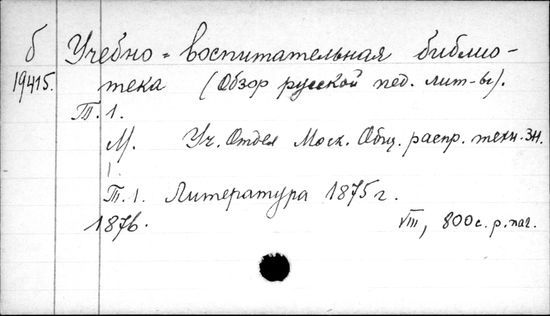 б Учебно-воспитательная библио-
19415. тека (Обзор русской пед. лит-ы).
Т. 1.
М. Уч. Отдел Моск. Общ. распр. техн. зн.
Т. 1. Литература 1875 г.
1876. VIII, 800 с. р. паг.